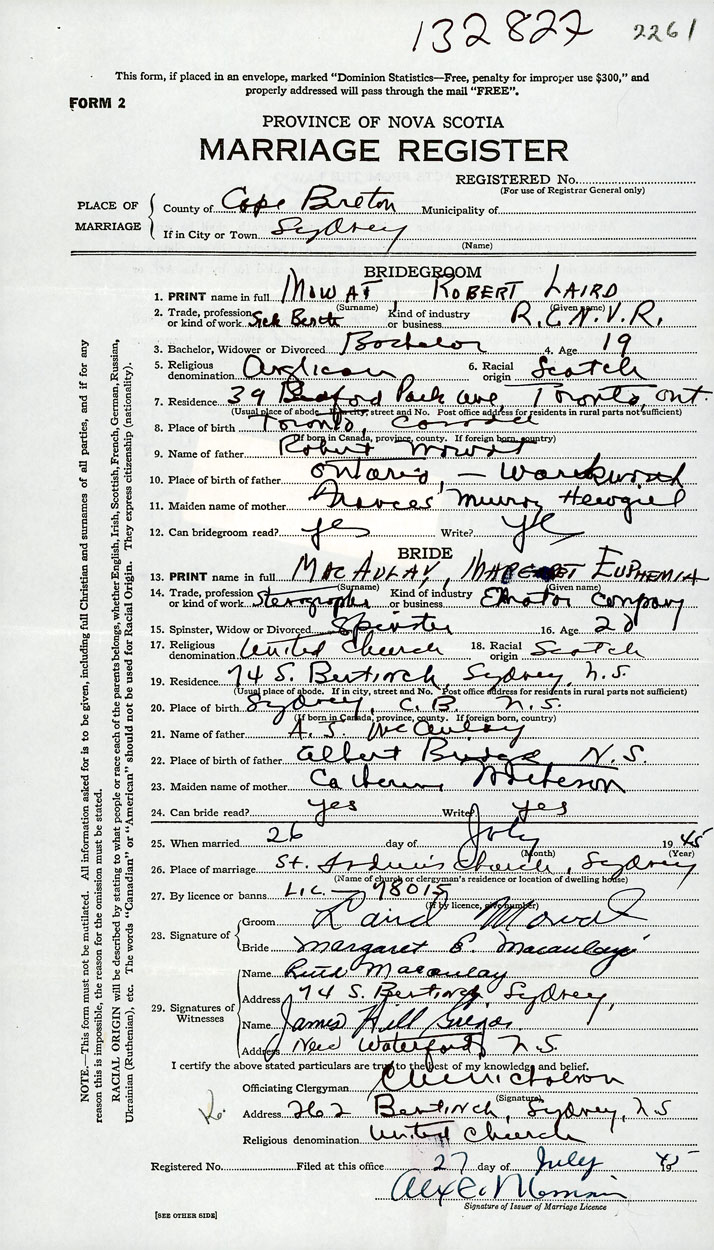 132827 2261
This form, if placed in an envelope, marked "Dominion Statistics—Free, penalty for improper use $300," and
properly addressed will pass through the mail "FREE".
FORM 2
PROVINCE OF NOVA SCOTIA
MARRIAGE REGISTER
REGISTERED No.
(For use of Registrar General only)
PLACE OF MARRIAGE
County of Cape Breton Municipality of
If in City or Town Sydney
(Name)
BRIDEGROOM
1. PRINT name in full MOWAT ROBERT LAIRD
(Surname) (Given name)
2. Trade, profession or kind of work Sick Berth Kind of industry or business R.C.N.V.R.
3. Bachelor, Widower or Divorced Bachelor 4. Age 19
5. Religious denomination Anglican 6. Racial origin Scotch
7. Residence 39 Bedford Park Ave, Toronto, Ont.
(Usual place of abode. If in city, street and No. Post office address for residents in rural parts not sufficient)
8. Place of birth Toronto, Canada
(If born in Canada, province, county. If foreign born, country)
9. Name of father Robert Mowat
10. Place of birth of father Ontario, —
11. Maiden name of mother Frances Murray
12. Can bridegroom read? yes Write? yes
BRIDE
13. PRINT name in full MACAULAY, MARGARET EUPHEMIA
(Surname) (Given name)
14. Trade, profession or kind of work Stenographer Kind of industry or business Company
15. Spinster, Widow or Divorced Spinster 16. Age
17. Religious denomination United Church 18. Racial origin Scotch
19. Residence 74 S. Bentinck, Sydney, N.S.
(Usual place of abode. If in city, street and No. Post office address for residents in rural parts not sufficient)
20. Place of birth Sydney, C.B. N.S.
(If born in Canada, province, county. If foreign born, country)
21. Name of father A. S. McAulay
22. Place of birth of father Albert Bridge N.S.
23. Maiden name of mother Catherine
24. Can bride read? yes Write? yes
25. When married 26 day of July 1945
(Month) (Year)
26. Place of marriage St. Andrew's Church, Sydney
(Name of church or clergyman's residence or location of dwelling house)
27. By licence or banns Lic. — 78015
(If by licence, give number)
28. Signature of
Groom Laird Mowat
Bride Margaret E. Macaulay
29. Signatures of Witnesses
Name Ruth Macaulay
Address 74 S. Bentinck, Sydney,
Name James Hill
Address New Waterford, N.S.
I certify the above stated particulars are true to the best of my knowledge and belief.
Officiating Clergyman Nicholson
(Signature)
Address 262 Bentinck, Sydney, N.S
Religious denomination United Church
Registered No. Filed at this office 27 day of July 45
Signature of Issuer of Marriage Licence
[SEE OTHER SIDE]
NOTE.—This form must not be mutilated. All information asked for is to be given, including full Christian and surnames of all parties, and if for any
reason this is impossible, the reason for the omission must be stated.
RACIAL ORIGIN will be described by stating to what people or race each of the parents belongs, whether English, Irish, Scottish, French, German, Russian,
Ukrainian (Ruthenian), etc. The words "Canadian" or "American" should not be used for Racial Origin. They express citizenship (nationality).